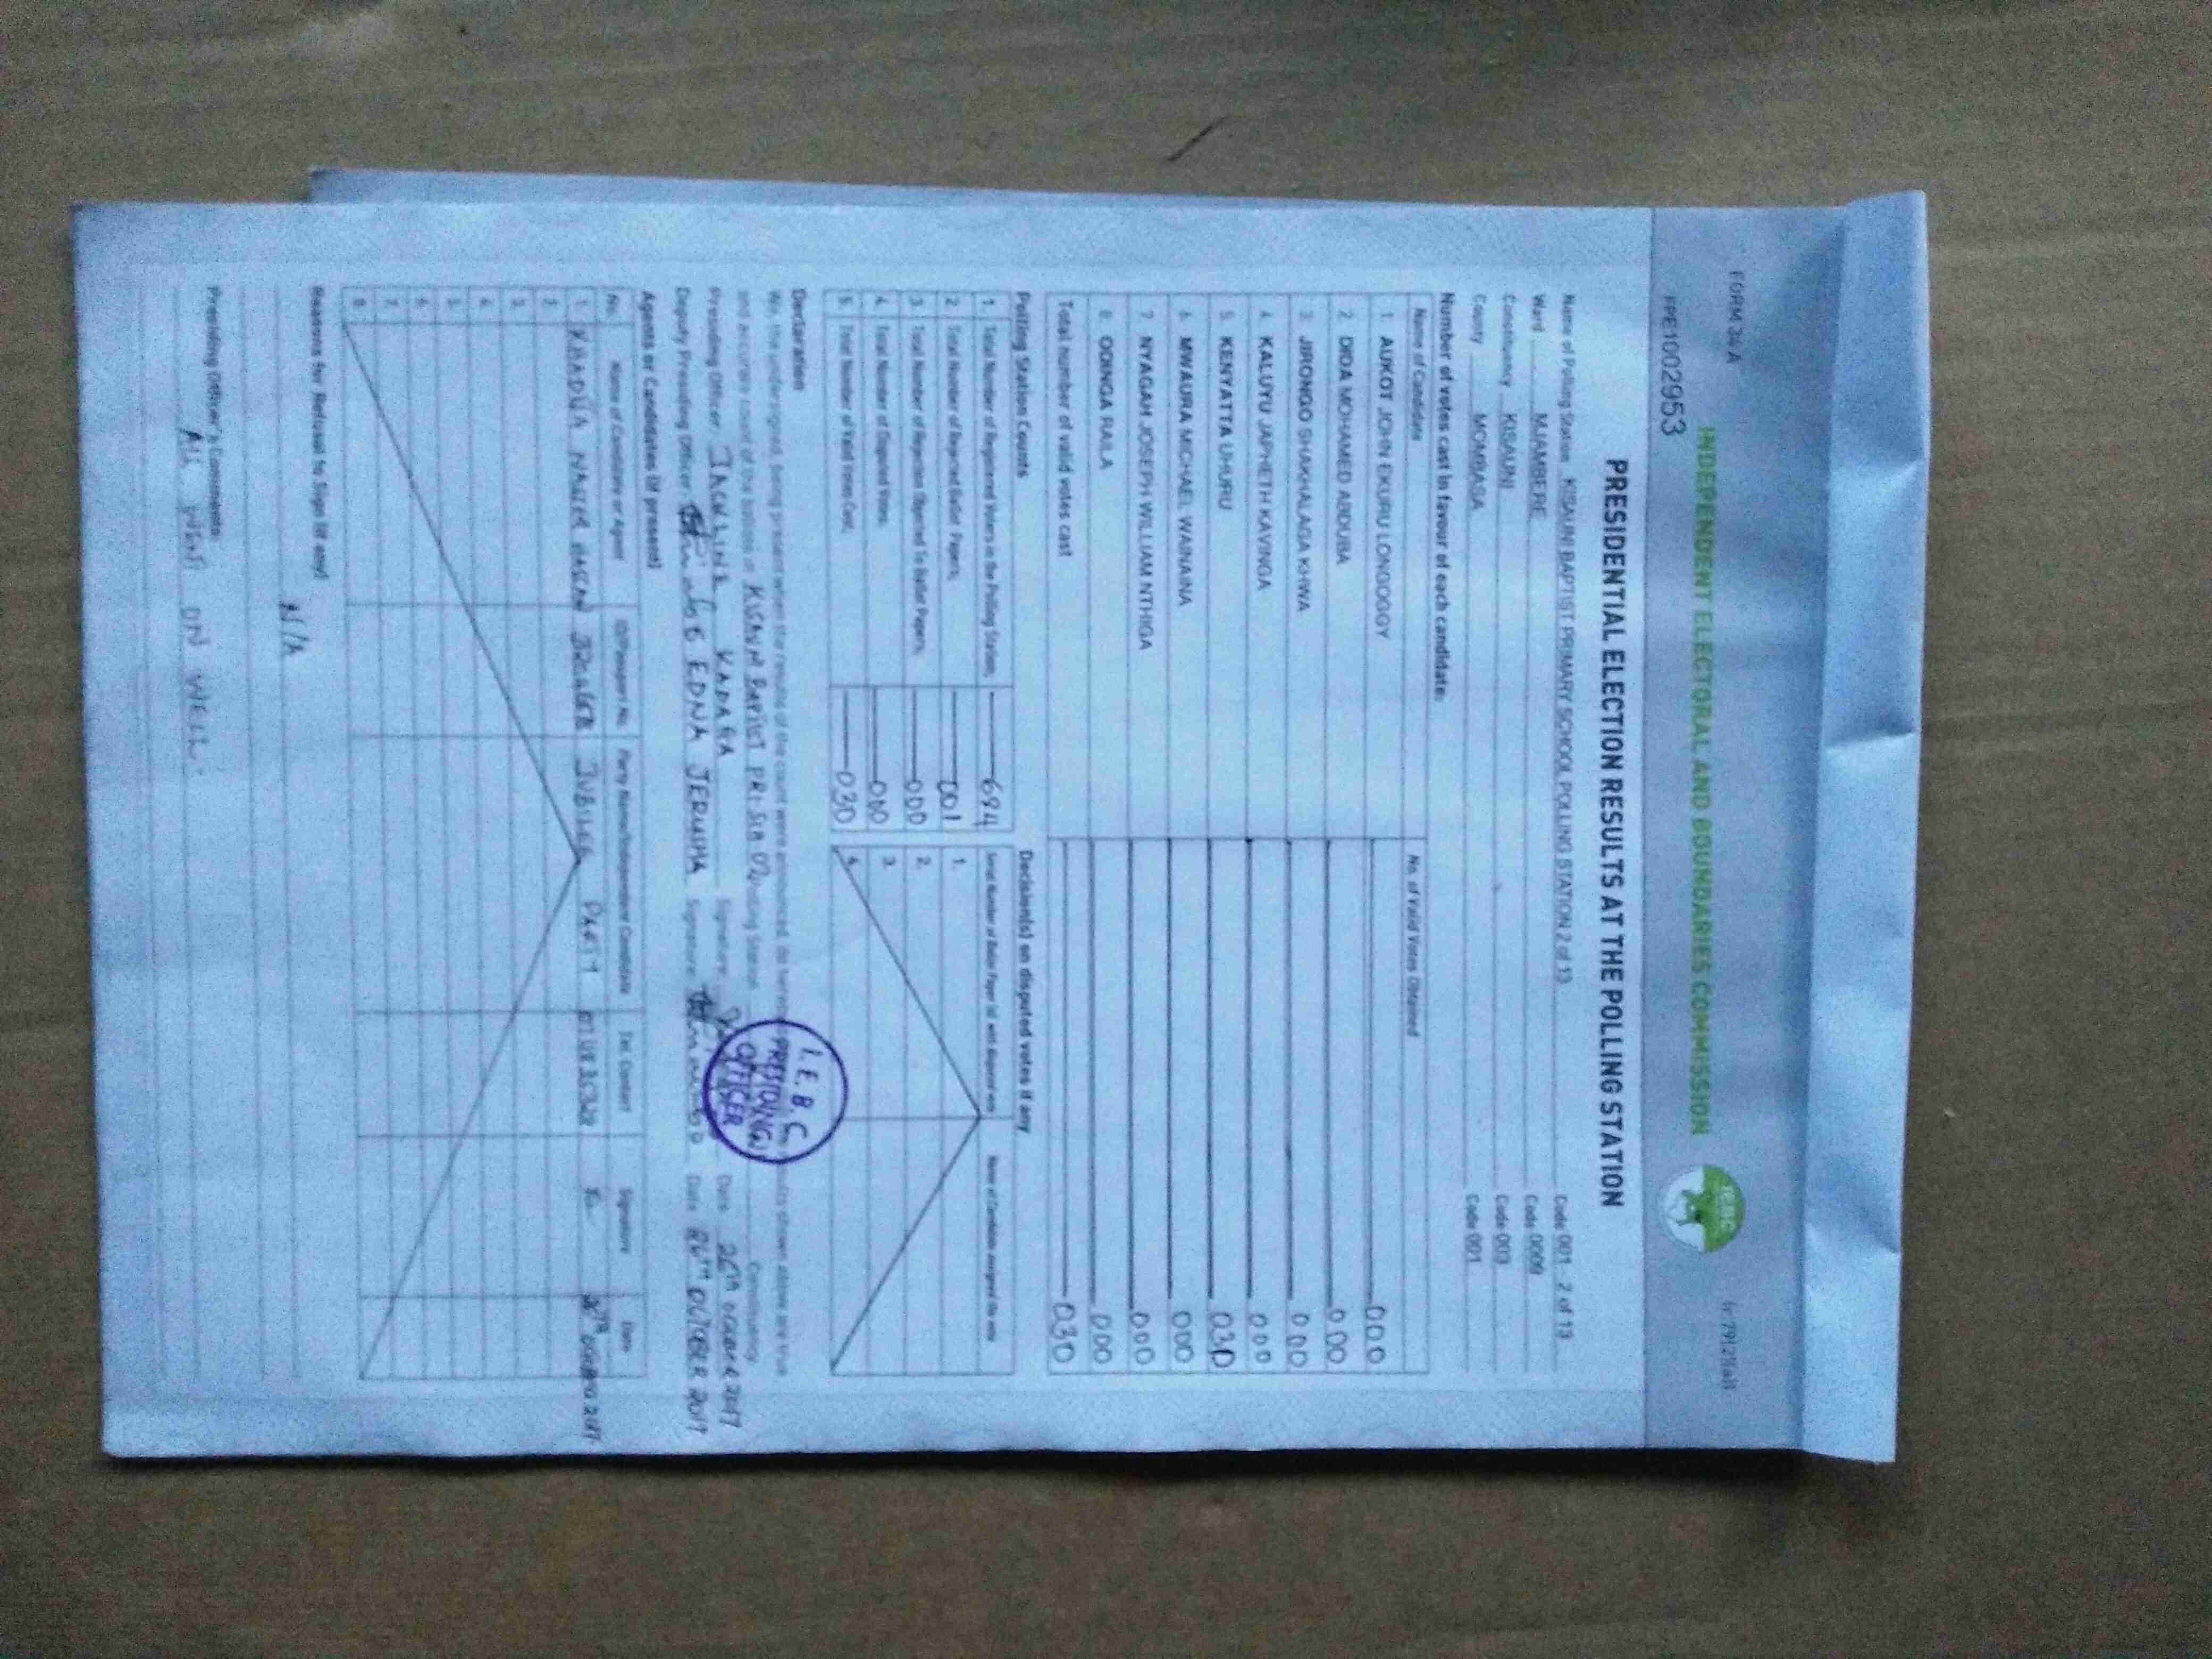 FORM 34A
INDEPENDENT ELECTORAL AND BOUNDARIES COMMISSION
IEBC
PPE1002953
PRESIDENTIAL ELECTION RESULTS AT THE POLLING STATION
Name of Polling Station KISAUNI BAPTIST PRIMARY SCHOOL POLLING STATION 2 of 13 Code 001 2 of 13
Ward MJAMBERE Code 0009
Constituency KISAUNI Code 003
County MOMBASA Code 001
Number of votes cast in favour of each candidate:
Name of Candidate No. of Valid Votes Obtained
1. AUKOT JOHN EKURU LONGOGGY 000
2. DIDA MOHAMED ABDUBA 000
3. JIRONGO SHAKHALAGA KHWA 000
4. KALUYU JAPHETH KAVINGA 000
5. KENYATTA UHURU 030
6. MWAURA MICHAEL WAINAINA 000
7. NYAGAH JOSEPH WILLIAM NTHIGA 000
8. ODINGA RAILA 000
Total number of valid votes cast 030
Polling Station Counts
1. Total Number of Registered Voters in the Polling Station; 694
2. Total Number of Rejected Ballot Papers; 001
3. Total Number of Rejection Objected To Ballot Papers; 000
4. Total Number of Disputed Votes; 000
5. Total Number of Valid Votes Cast; 030
Decision(s) on disputed votes if any
Serial Number of Ballot Paper (s) with disputed vote Name of Candidate assigned the vote
1.
2.
3.
4.
Declaration
We, the undersigned, being present when the results of the count were announced, do hereby shown above are true
and accurate count of the ballots in KISAUNI BAPTIST PRI Polling Station Constituency
Presiding Officer JACKLINE KADARA Signature Date 26TH OCTOBER 2017
Deputy Presiding Officer EDNA JERUMA Signature Date 26TH OCTOBER 2017
I.E.B.C.
PRESIDING
OFFICER
Agents or Candidates (if present)
No. Name of Candidate or Agent ID/Passport No. Party Name/Independent Candidate Tel. Contact Signature Date
1. HASSAN JUBILEE PARTY
2.
3.
4.
5.
6.
7.
8.
Reasons for Refusal to Sign (if any)
N/A
Presiding Officer's Comments:
ALL WENT ON WELL.